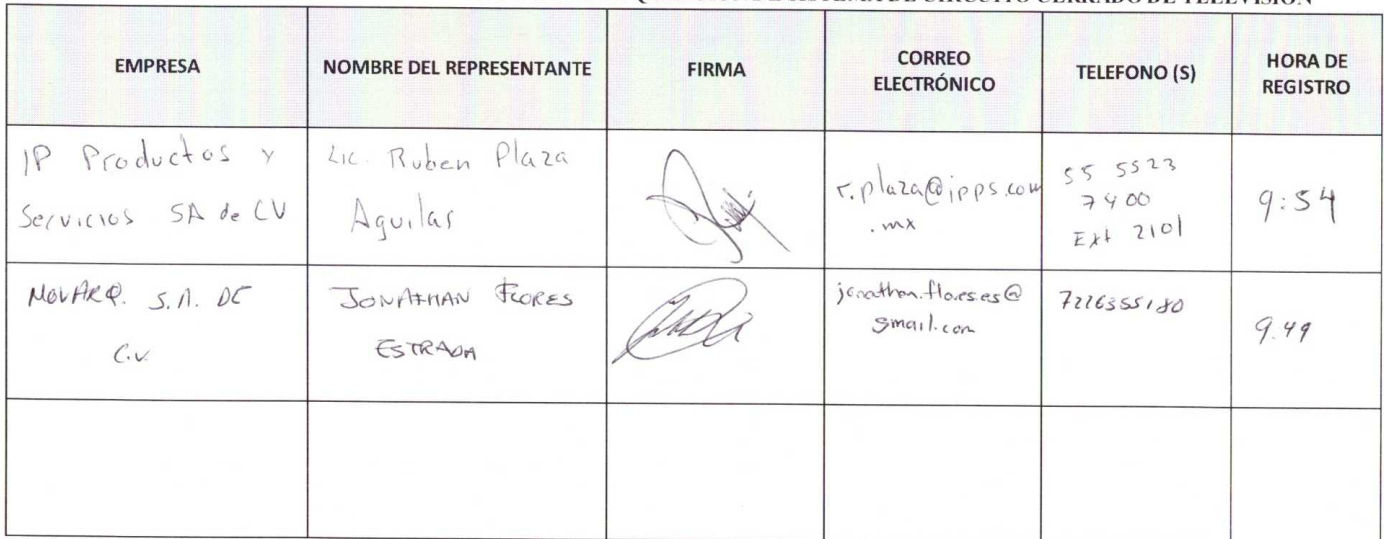 DE CIRCUITO CERRADO DE TELEVISIÓN
EMPRESA
NOMBRE DEL REPRESENTANTE
FIRMA
CORREO
ELECTRÓNICO
TELEFONO (S)
HORA DE
REGISTRO
IP Productos y
Servicios SA de CV
Lic. Ruben Plaza
Aguilar
r.plaza@ipps.com
.mx
55 5523
7400
Ext 2101
9:54
MOVARQ. S.A. DE
C.V.
JONATHAN FLORES
ESTRADA
jonathan.flores.es@
gmail.com
7226355180
9.49